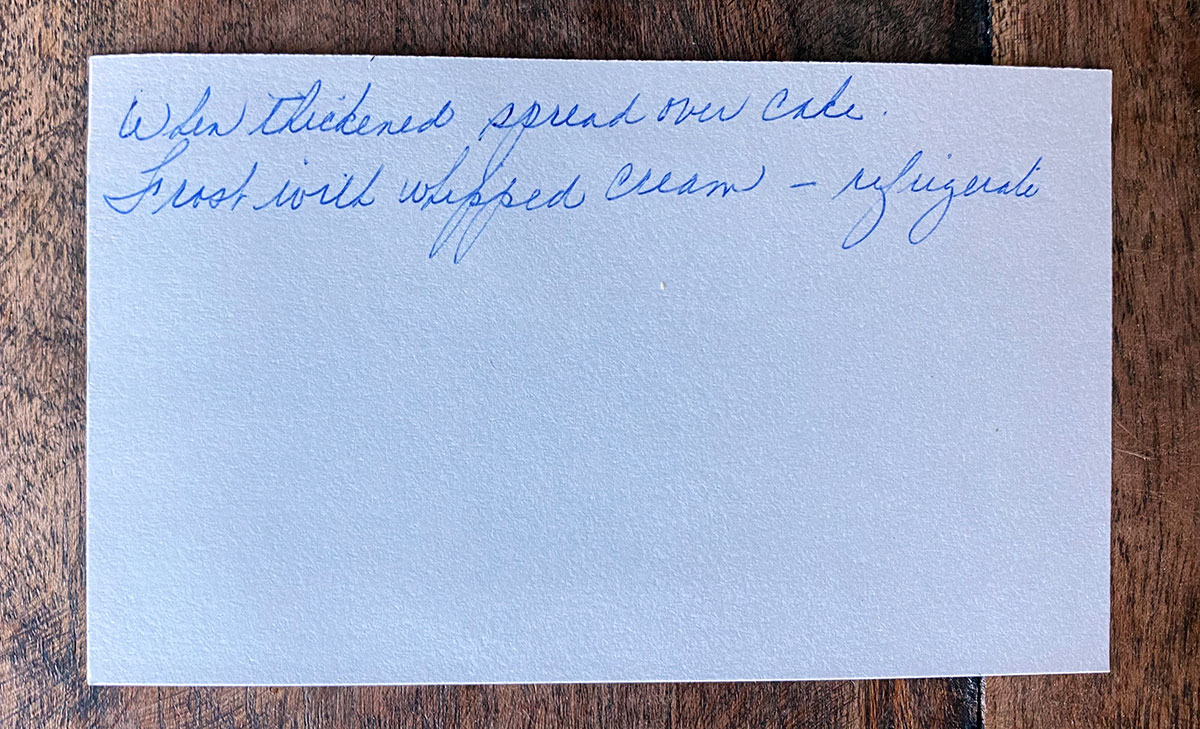 When thickened spread over cake.
Frost with whipped cream - refrigerate